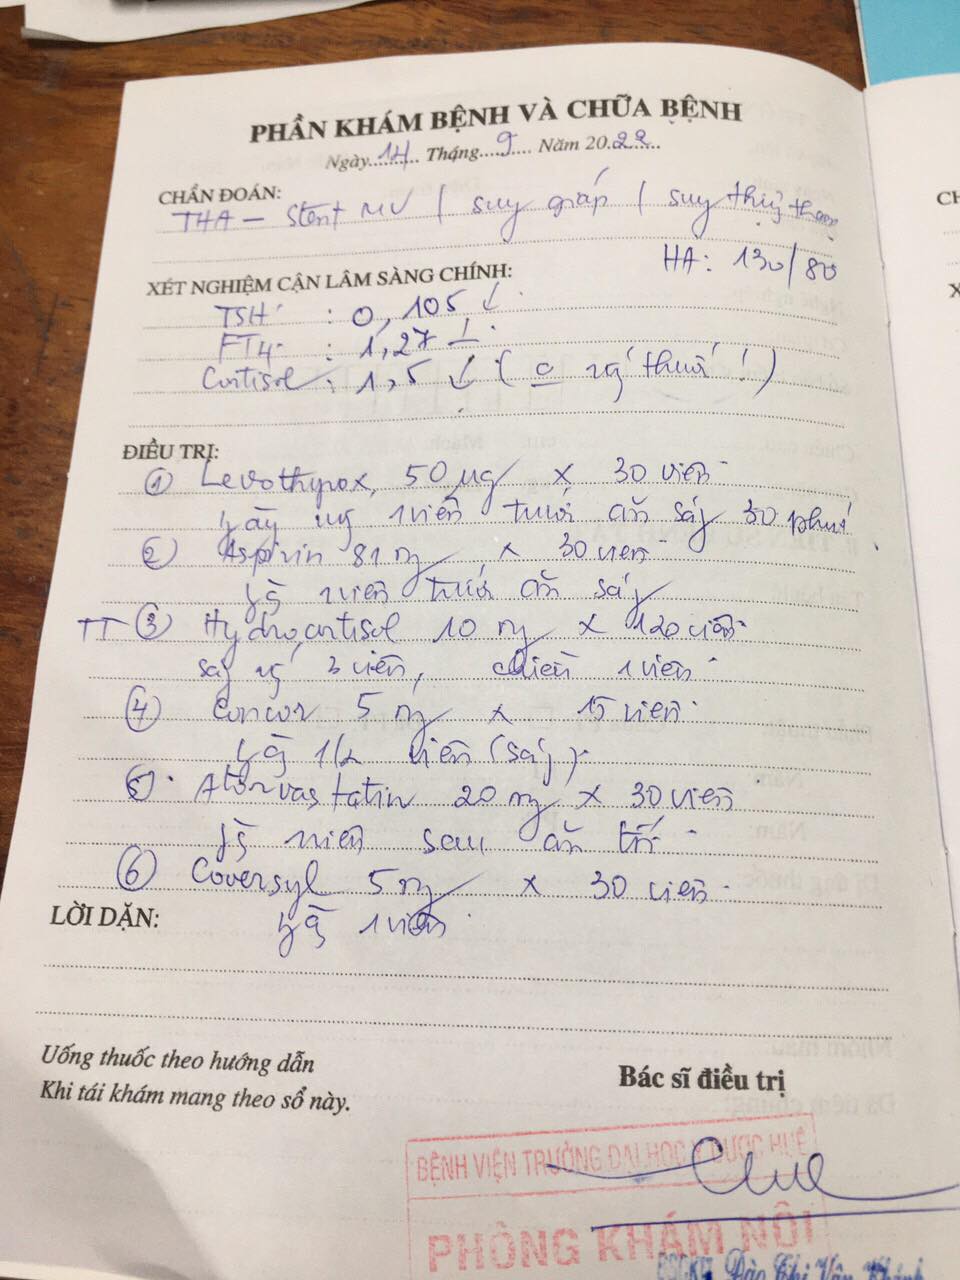 PHẦN KHÁM BỆNH VÀ CHỮA BỆNH
Ngày 14 Tháng 9 Năm 2022
CHẨN ĐOÁN:
THA - Stent MV / suy giáp / suy thượng thận
HA: 130/80
XÉT NGHIỆM CẬN LÂM SÀNG CHÍNH:
TSH : 0,105 ↓
FT4 : 1,27 ⊥
Cortisol : 1,5 ↓ ( thuốc ! )
ĐIỀU TRỊ:
① Levothyrox 50 µg x 30 viên
ngày ug 1 viên trước ăn sáng 30 phút
② Aspirin 81 mg x 30 viên
ng 1 viên trước ăn sáng
TT ③ Hydrocortisol 10 mg x 120 viên
sáng ug 3 viên, chiều 1 viên
④ Concor 5 mg x 15 viên
ng 1/2 viên (sáng)
⑤ Atorvastatin 20 mg x 30 viên
ng 1 viên sau ăn tối
⑥ Coversyl 5 mg x 30 viên
LỜI DẶN:
ng 1 viên
Uống thuốc theo hướng dẫn
Khi tái khám mang theo sổ này.
Bác sĩ điều trị
BỆNH VIỆN TRƯỜNG ĐẠI HỌC Y DƯỢC HUẾ
PHÒNG KHÁM NỘI